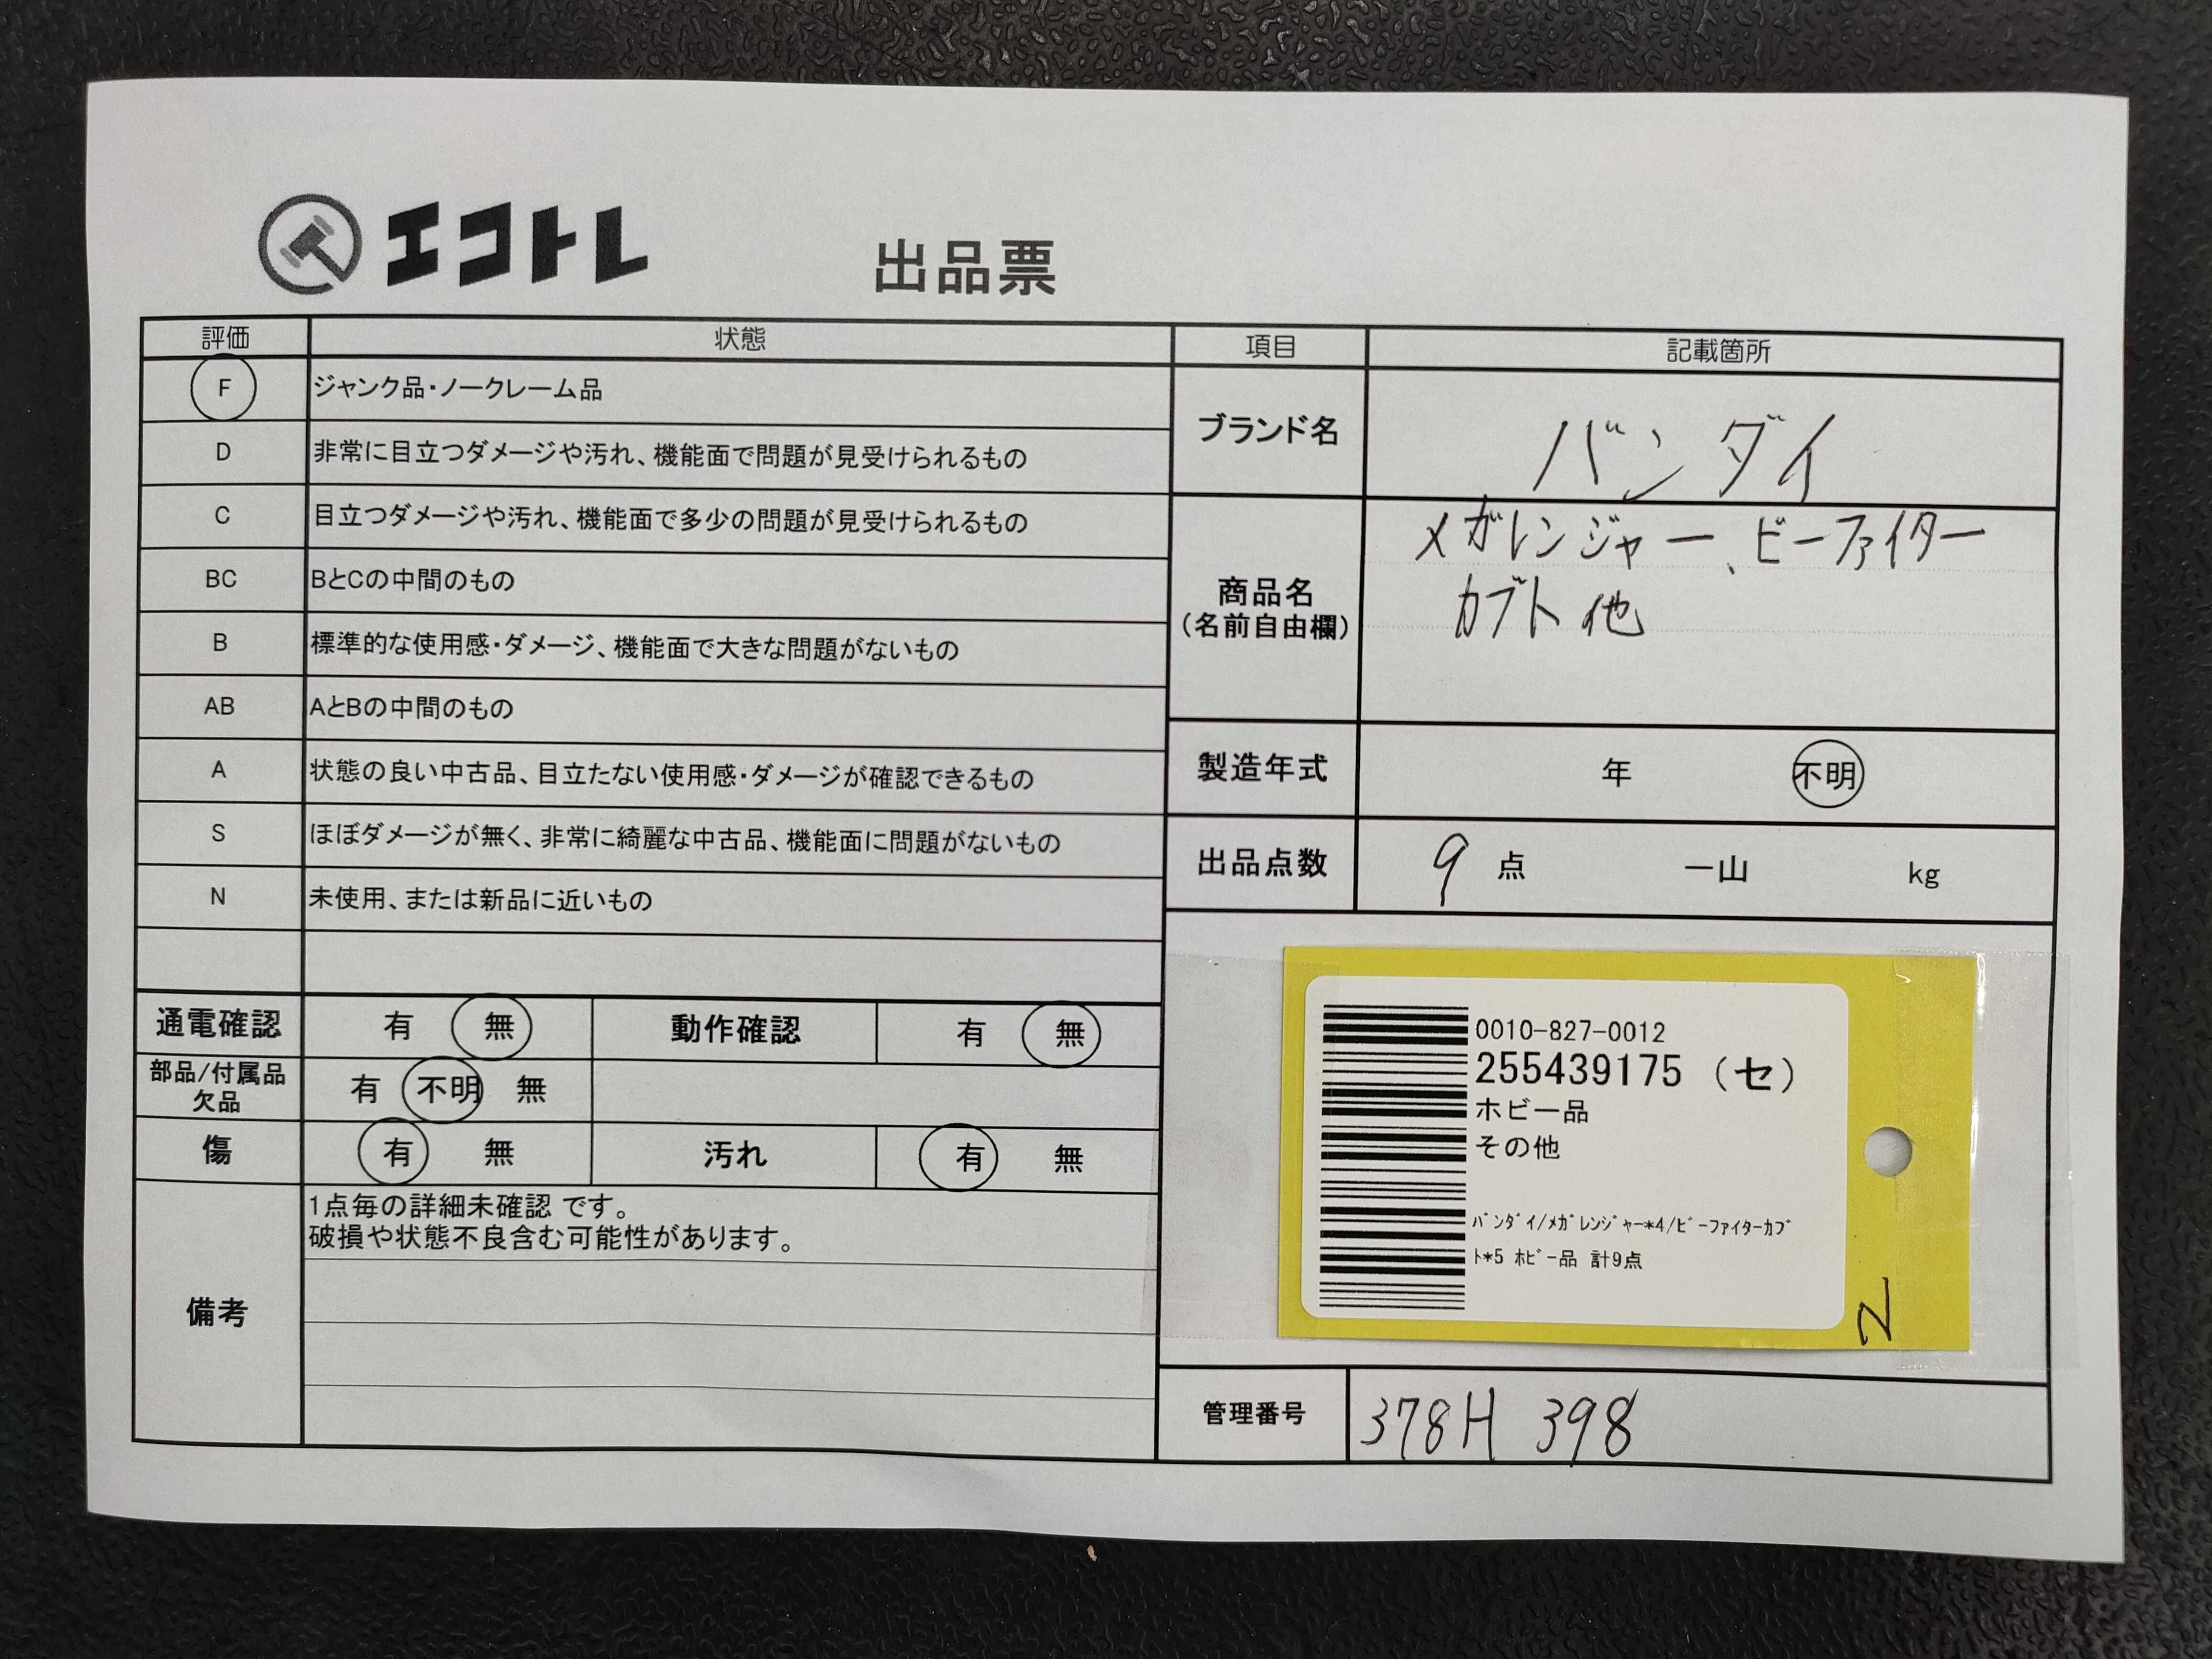 エコトレ
出品票
評価 状態
F ジャンク品・ノークレーム品
D 非常に目立つダメージや汚れ、機能面で問題が見受けられるもの
C 目立つダメージや汚れ、機能面で多少の問題が見受けられるもの
BC BとCの中間のもの
B 標準的な使用感・ダメージ、機能面で大きな問題がないもの
AB AとBの中間のもの
A 状態の良い中古品、目立たない使用感・ダメージが確認できるもの
S ほぼダメージが無く、非常に綺麗な中古品、機能面に問題がないもの
N 未使用、または新品に近いもの
通電確認 有 無 動作確認 有 無
部品/付属品
欠品 有 不明 無
傷 有 無 汚れ 有 無
備考
1点毎の詳細未確認 です。
破損や状態不良含む可能性があります。
項目 記載箇所
ブランド名 バンダイ
商品名
(名前自由欄)
メガレンジャー、ビーファイター
カブト他
製造年式 年 不明
出品点数 9 点 一山 kg
0010-827-0012
255439175 (セ)
ホビー品
その他
ﾊﾞﾝﾀﾞｲ/ﾒｶﾞﾚﾝｼﾞｬｰ*4/ﾋﾞｰﾌｧｲﾀｰｶﾌﾞ
ﾄ*5 ﾎﾋﾞｰ品 計9点
管理番号 378H 398